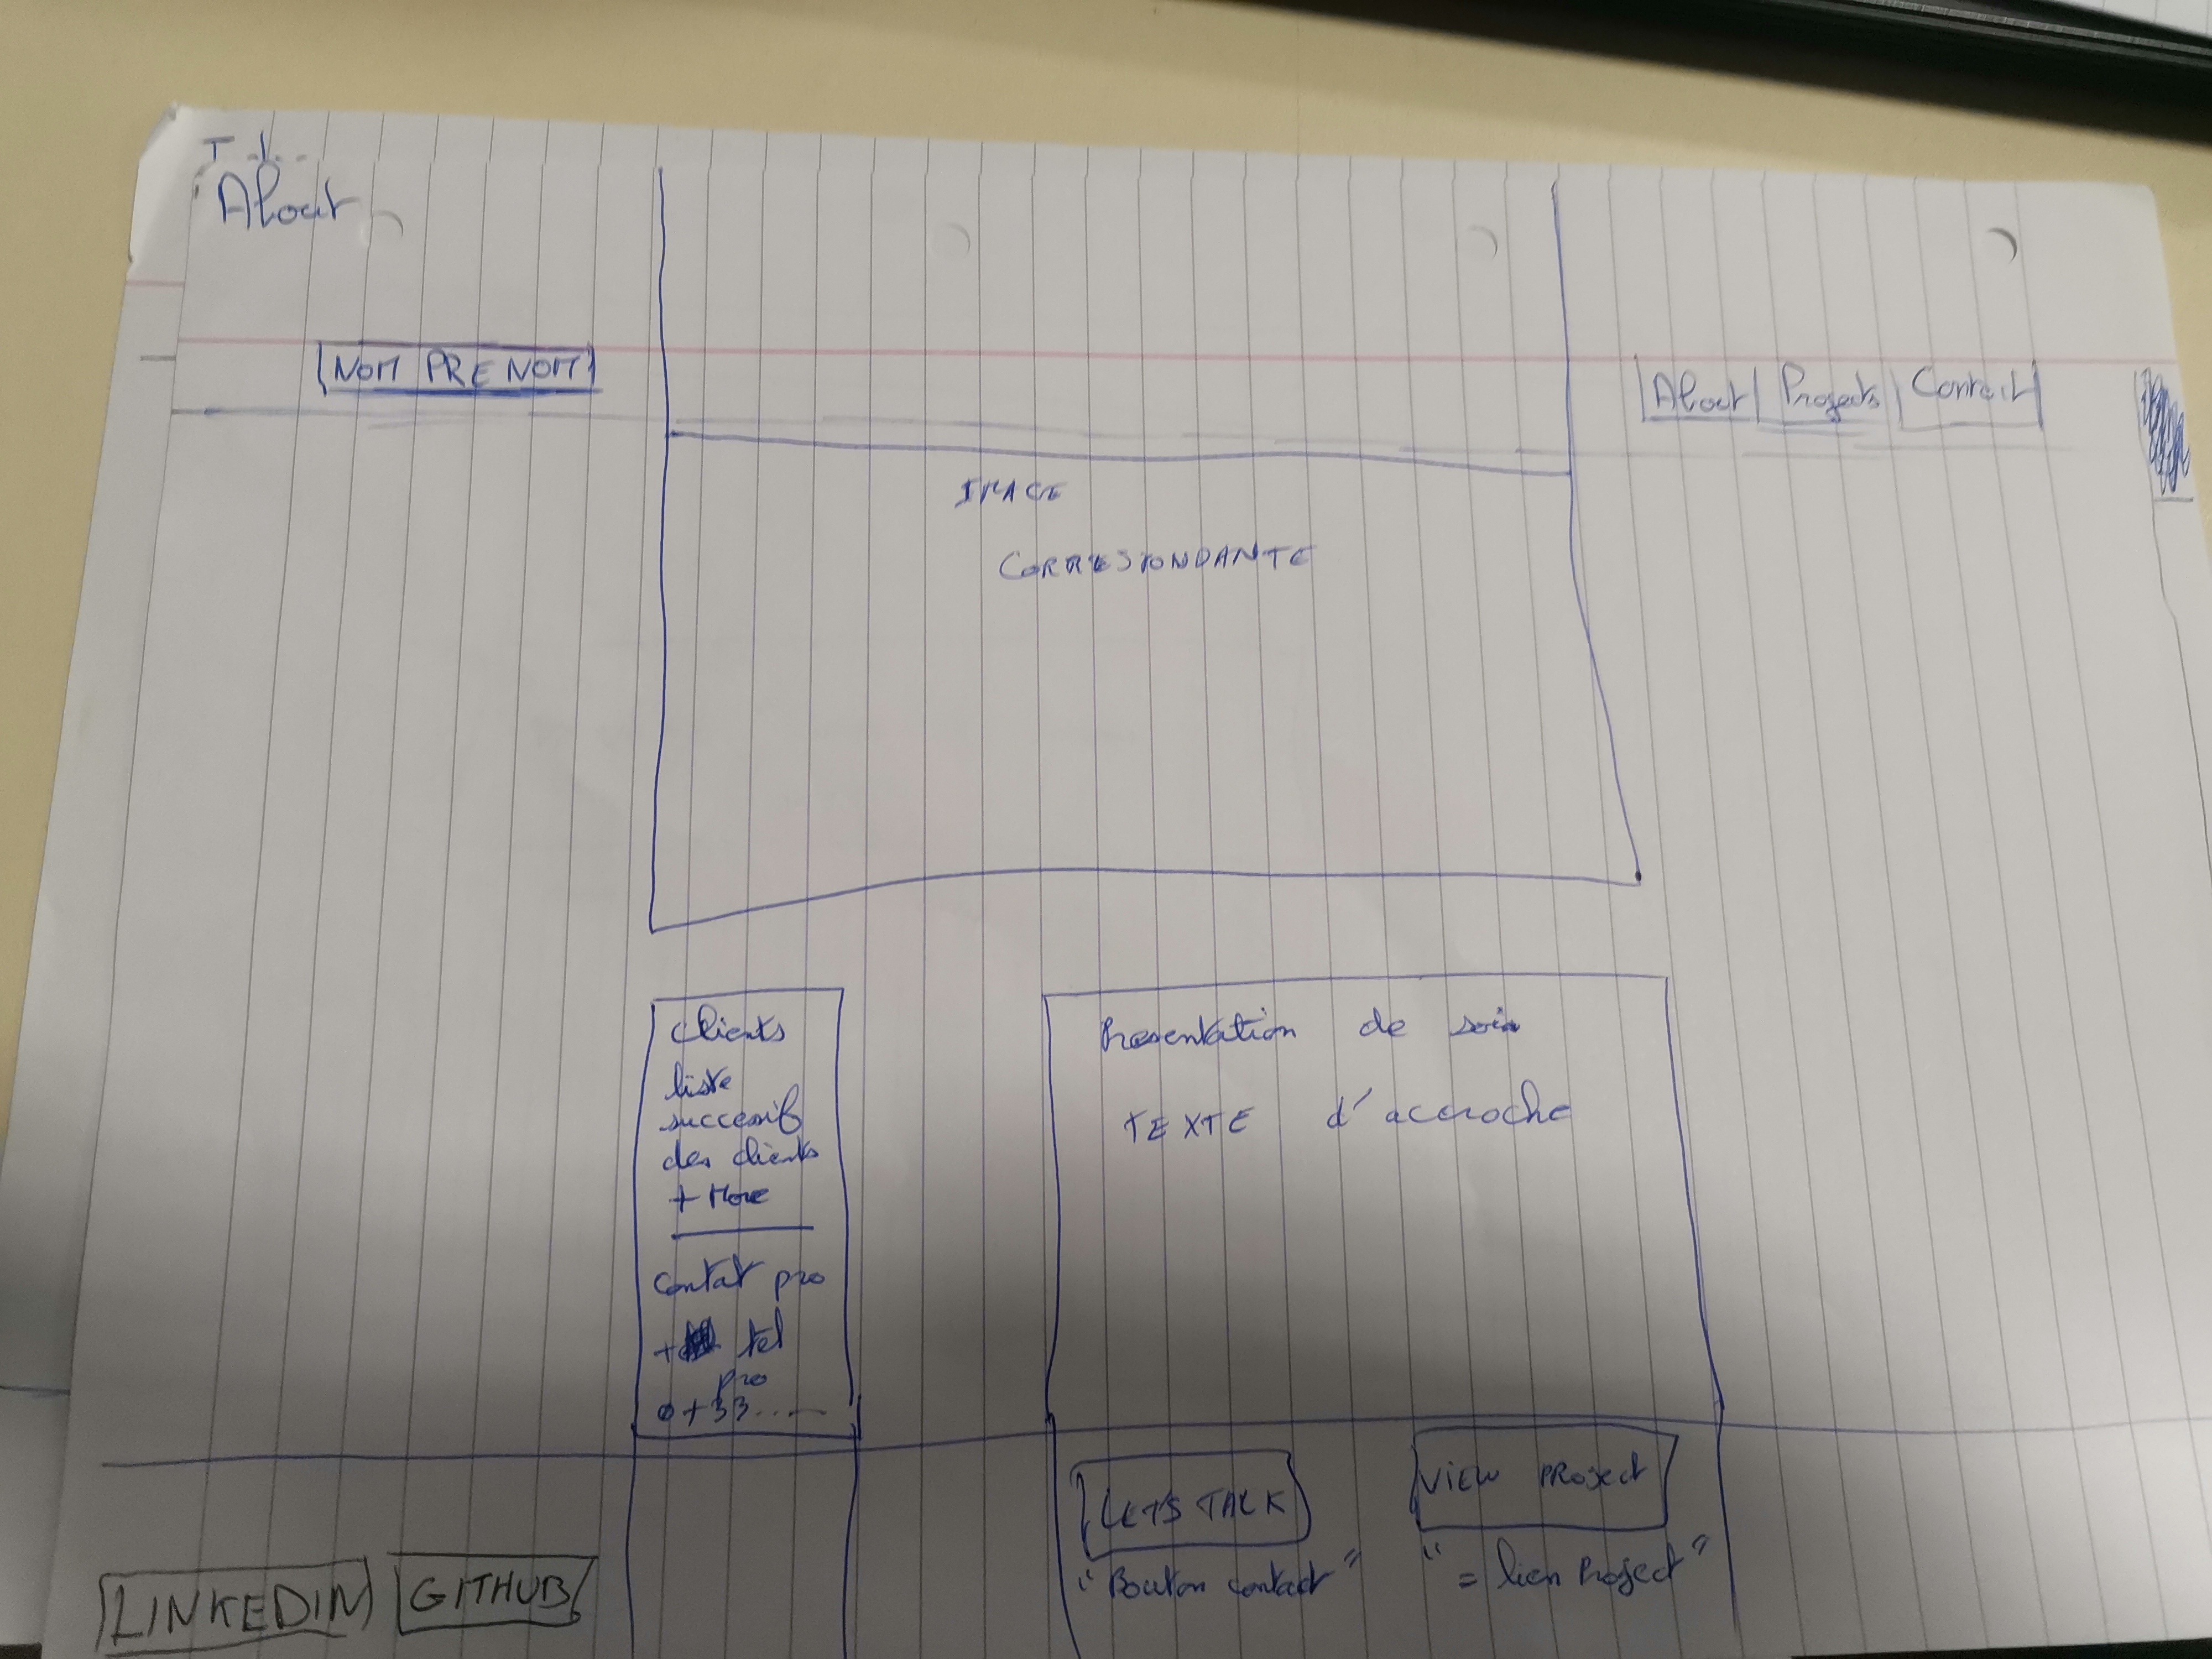 About
NOM PRENOM
About Projects Contact
IMAGE
CORRESPONDANTE
Clients
liste
successif
des clients
+ More
Contat pro
+ tel
pro
+33.....
Presentation de soin
TEXTE d'accroche
LETS TALK
VIEW PROject
"Bouton contact"
"= lien Project"
LINKEDIN
GITHUB